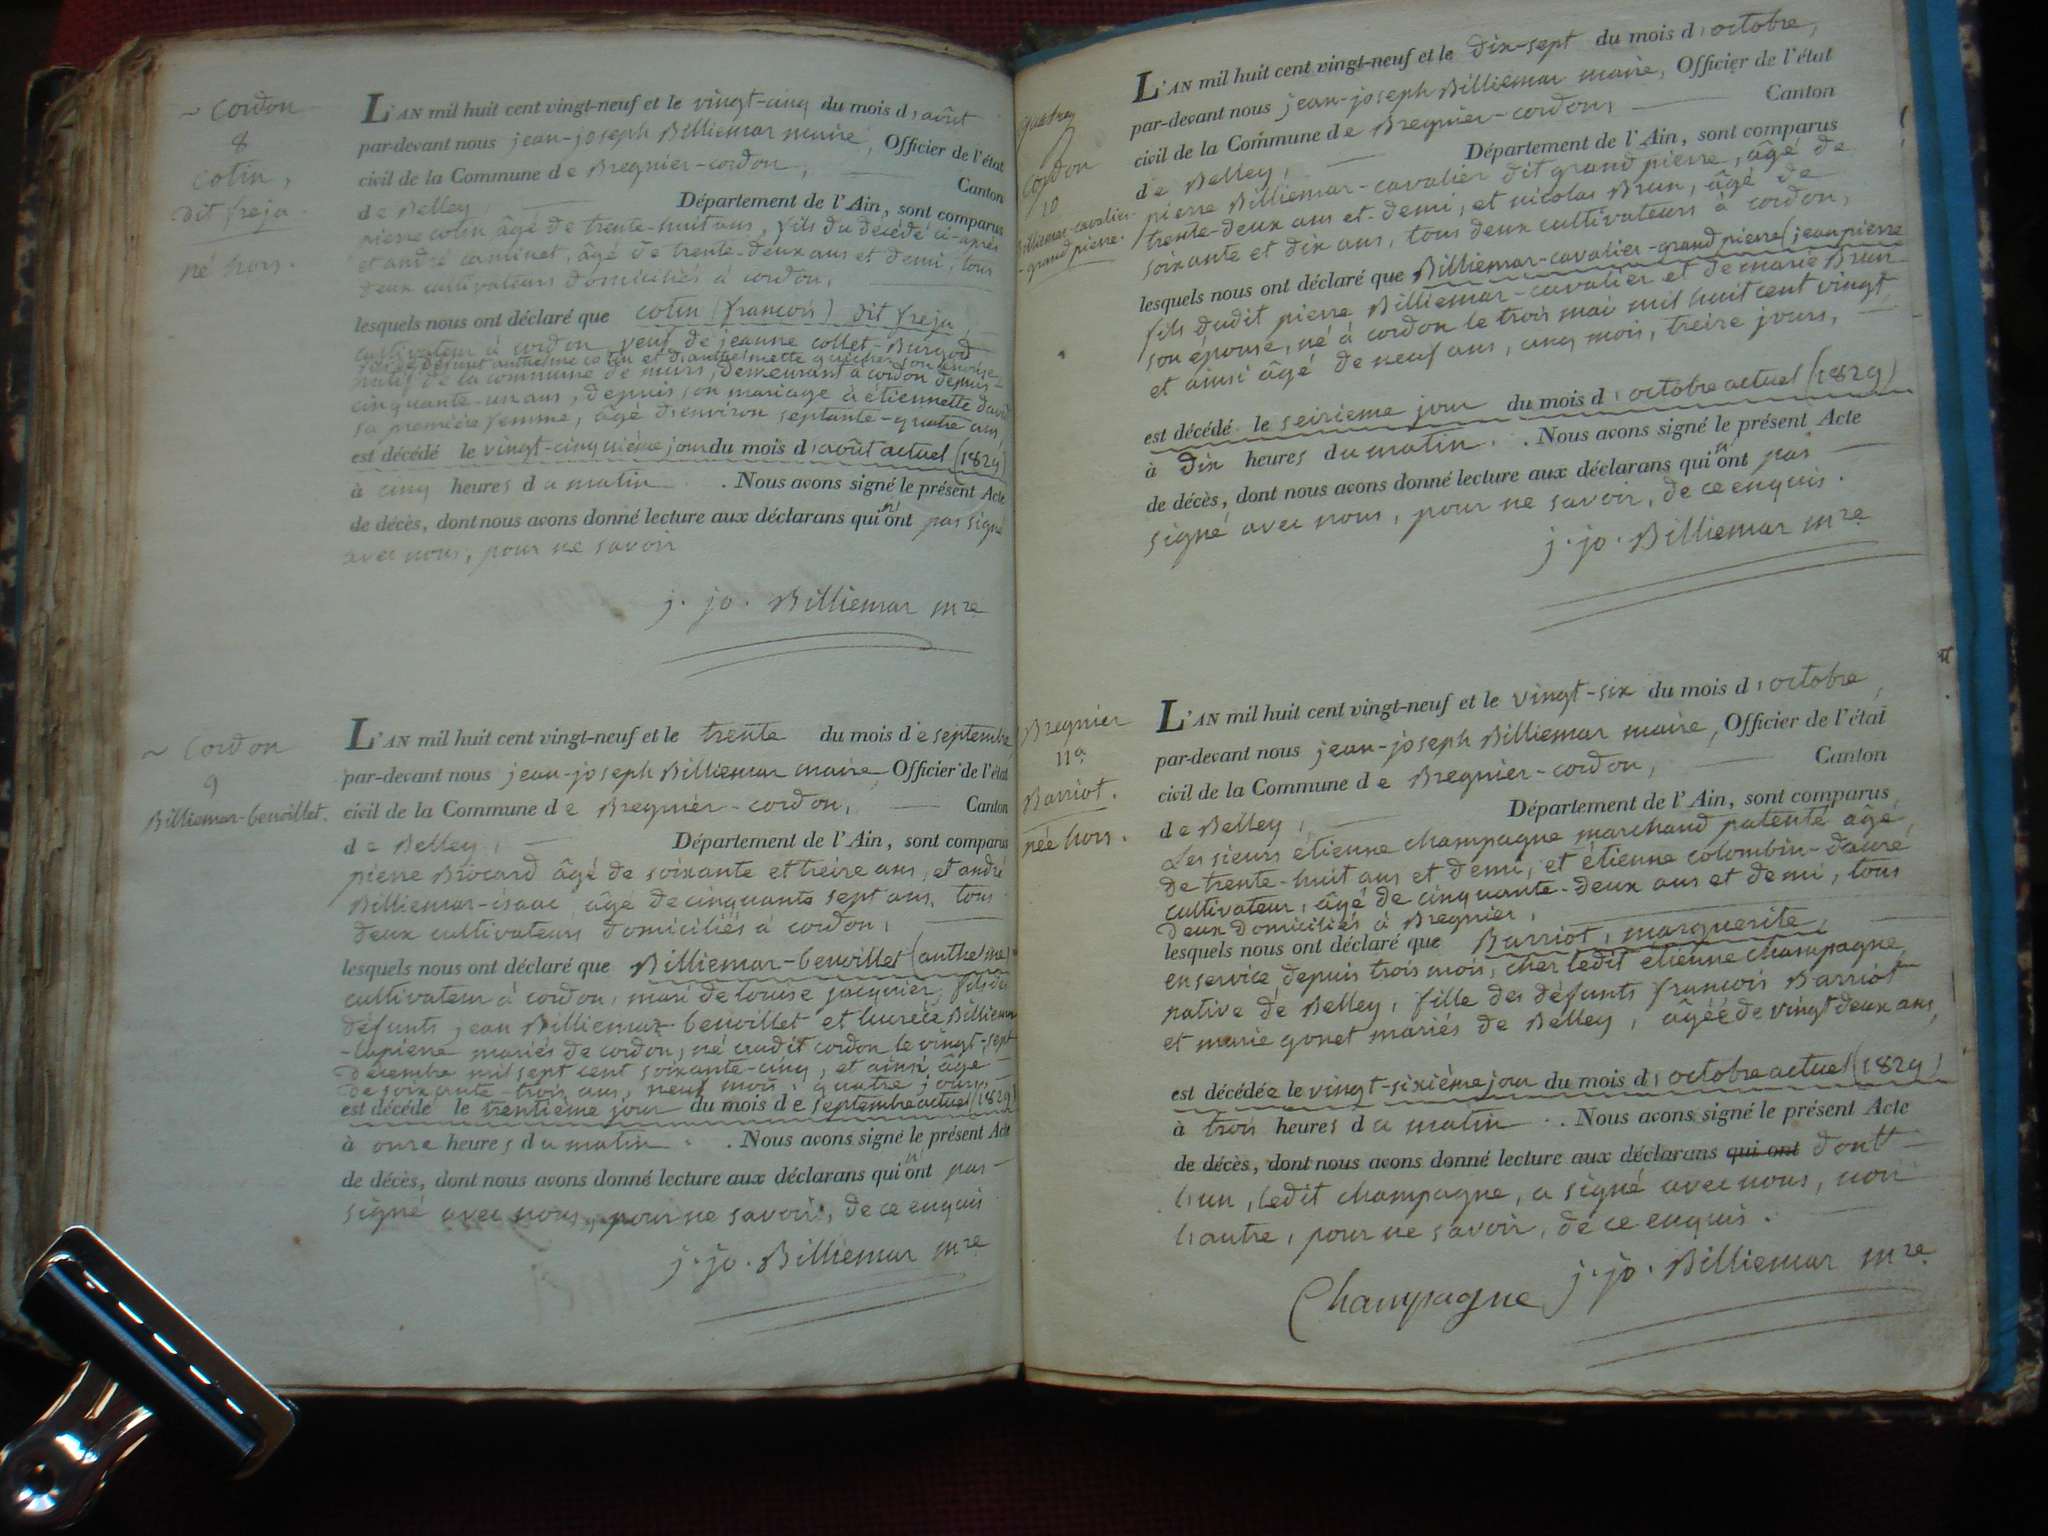 ~ Cordon
8
colin,
dit freja.
né hors.
L'AN mil huit cent vingt-neuf et le vingt-cinq du mois d'août
par-devant nous jean-joseph Billiemar maire, Officier de l'état
civil de la Commune de Bregnier-cordon, Canton
de Belley, Département de l'Ain, sont comparus
pierre colin âgé de trente-huit ans, fils du décédé ci-après
et andré caminet, âgé de trente-deux ans et demi, tous
deux cultivateurs domiciliés à cordon,
lesquels nous ont déclaré que colin (francois) dit freja,
cultivateur à cordon, veuf de jeanne collet-Burgod
fils de défunt anthelme colin et d'anthelmette son épouse
natif de la commune de murs, demeurant à cordon depuis
cinquante-un ans, depuis son mariage à étiennette david
sa première femme, âgé d'environ septante-quatre ans,
est décédé le vingt-cinquième jour du mois d'août actuel (1829)
à cinq heures du matin. Nous avons signé le présent Acte
de décès, dont nous avons donné lecture aux déclarans qui n'ont pas signé
avec nous, pour ne savoir
j. jo. Billiemar mre
~ Cordon
9
Billiemar-benoillet.
L'AN mil huit cent vingt-neuf et le trente du mois de septembre
par-devant nous jean-joseph Billiemar maire, Officier de l'état
civil de la Commune de Bregnier-cordon, Canton
de Belley, Département de l'Ain, sont comparus
pierre Brocard âgé de soixante et treize ans, et andré
Billiemar-isaac, âgé de cinquante sept ans, tous
deux cultivateurs domiciliés à cordon,
lesquels nous ont déclaré que Billiemar-benoillet (anthelme)
cultivateur à cordon, mari de louise jacquier, fils des
défunts jean Billiemar-benoillet et lucrèce Billiemar
-lapierre mariés de cordon, né audit cordon le vingt-sept
décembre mil sept cent soixante-cinq, et ainsi âgé
de soixante-trois ans, neuf mois, quatre jours
est décédé le trentième jour du mois de septembre actuel (1829)
à onze heures du matin. Nous avons signé le présent Acte
de décès, dont nous avons donné lecture aux déclarans qui n'ont pas
signé avec nous, pour ne savoir, de ce enquis
j. jo. Billiemar mre
Cordon
10
Billiemar-cavalier-
-grand pierre.
L'AN mil huit cent vingt-neuf et le dix-sept du mois d'octobre,
par-devant nous jean-joseph Billiemar maire, Officier de l'état
civil de la Commune de Bregnier-cordon, Canton
de Belley, Département de l'Ain, sont comparus
pierre Billiemar-cavalier dit grand pierre, âgé de
trente-deux ans et demi, et nicolas Brun, âgé de
soixante et dix ans, tous deux cultivateurs à cordon,
lesquels nous ont déclaré que Billiemar-cavalier-grand pierre (jean pierre
fils dudit pierre Billiemar-cavalier et de marie Brun
son épouse, né à cordon le trois mai mil huit cent vingt
et ainsi âgé de neuf ans, cinq mois, treize jours,
est décédé le seizième jour du mois d'octobre actuel (1829)
à Dix heures du matin. Nous avons signé le présent Acte
de décès, dont nous avons donné lecture aux déclarans qui n'ont pas
signé avec nous, pour ne savoir, de ce enquis.
j. jo. Billiemar mre
Bregnier
11e
Barriot.
née hors.
L'AN mil huit cent vingt-neuf et le vingt-six du mois d'octobre,
par-devant nous jean-joseph Billiemar maire, Officier de l'état
civil de la Commune de Bregnier-cordon, Canton
de Belley, Département de l'Ain, sont comparus
Les sieurs etienne champagne marchand patenté âgé
de trente-huit ans et demi, et étienne colombin-dauré
cultivateur, âgé de cinquante-deux ans et demi, tous
deux domiciliés à Bregnier,
lesquels nous ont déclaré que Barriot, marguerite,
en service depuis trois mois, chez ledit etienne champagne,
native de Belley, fille des défunts francois Barriot
et marie gonet mariés de Belley, âgée de vingt deux ans,
est décédée le vingt-sixième jour du mois d'octobre actuel (1829)
à trois heures du matin. Nous avons signé le présent Acte
de décès, dont nous avons donné lecture aux déclarans qui ont dont
l'un, ledit champagne, a signé avec nous, non
l'autre, pour ne savoir, de ce enquis.
Champagne j. jo. Billiemar mre